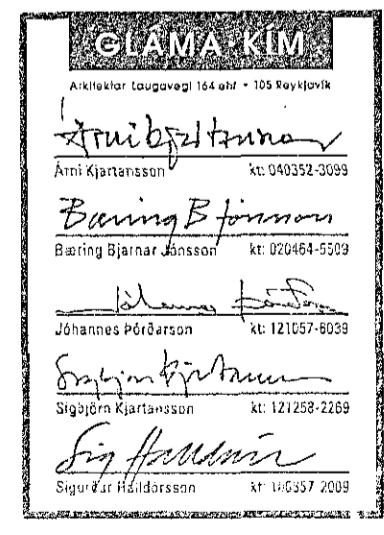 GLÁMA·KÍM
Arkitektar Laugavegi 164 ehf • 105 Reykjavík
Árni Kjartansson
Árni Kjartansson kt: 040352-3099
Bæring B Jónsson
Bæring Bjarnar Jónsson kt: 020464-5509
Jóhannes Þórðarson
Jóhannes Þórðarson kt: 121057-6039
Sigbjörn Kjartansson
Sigbjörn Kjartansson kt: 121258-2269
Sig Halldórs
Sigurður Halldórsson kt: 2009